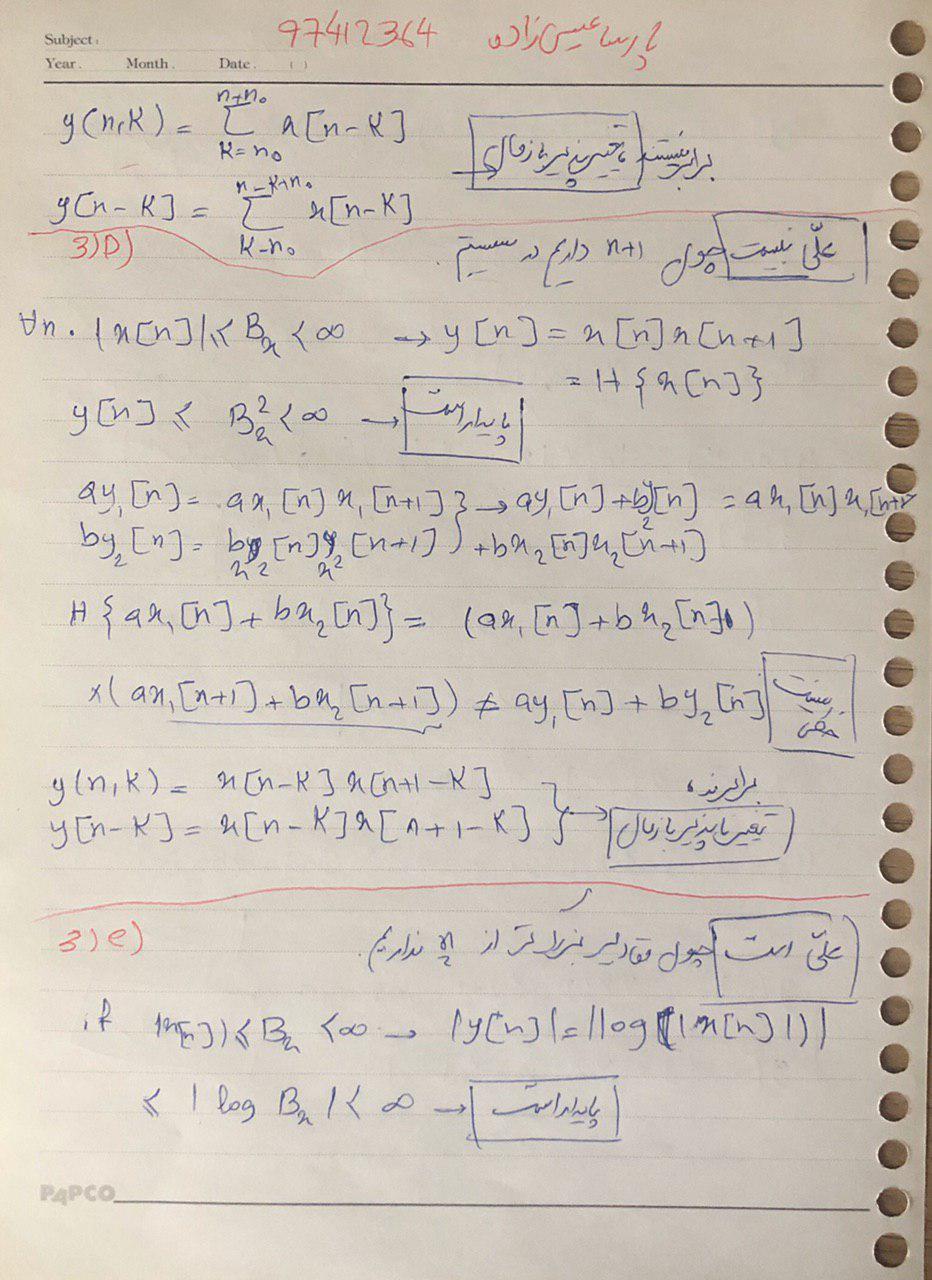 Subject: 97412364 پارسا عیسی زاده
Year. Month. Date. ( )
y(n,k) = Σ_{k=n₀}^{n+n₀} x[n-k] برابر نیستند تغییرپذیر با زمان
y[n-k] = Σ_{k-n₀}^{n-k+n₀} x[n-k]
3)D) علّی نیست چون n+1 داریم در سیستم
∀n. |x[n]| ≤ Bₓ < ∞ → y[n] = x[n]x[n+1]
= H{x[n]}
y[n] ≤ Bₓ² < ∞ → پایدار است
ay₁[n] = ax₁[n]x₁[n+1] } → ay₁[n]+by₂[n] = ax₁[n]x₁[n+1]
by₂[n] = bx₂[n]x₂[n+1] } +bx₂[n]x₂[n+1]
H{ax₁[n]+bx₂[n]} = (ax₁[n]+bx₂[n])
×(ax₁[n+1]+bx₂[n+1]) ≠ ay₁[n]+by₂[n] نیست خطی
y(n,k) = x[n-k]x[n+1-k] برابرند
y[n-k] = x[n-k]x[n+1-k] } → تغییرناپذیر با زمان
3)e) علّی است چون مقادیر بزرگ‌تر از n نداریم.
if |x[n]| ≤ Bₓ < ∞ → |y[n]| = |log(|x[n]|)|
≤ |log Bₓ| < ∞ → پایدار است
PAPCO